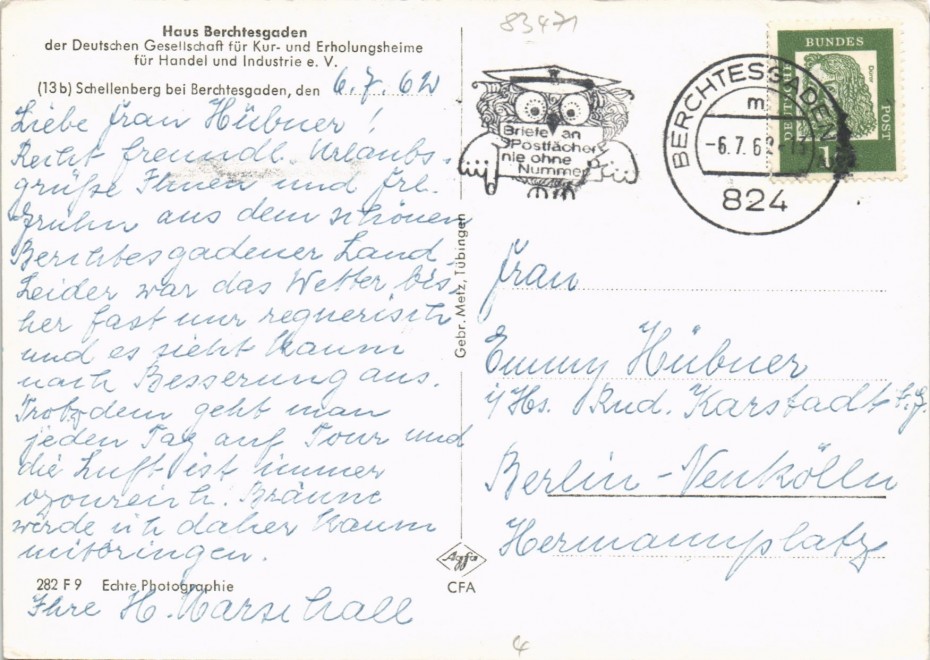 83471
Haus Berchtesgaden
der Deutschen Gesellschaft für Kur- und Erholungsheime
für Handel und Industrie e. V.
(13b) Schellenberg bei Berchtesgaden, den 6.7.62
Liebe Frau Hübner!
Recht freundl. Urlaubs-
grüße Ihnen und Frl.
Bruhn aus dem schönen
Berchtesgadener Land.
Leider war das Wetter bis-
her fast nur regnerisch
und es sieht kaum
nach Besserung aus.
Trotzdem geht man
jeden Tag auf Tour und
die Luft ist immer
ozonreich. Bräune
würde ich daher kaum
mitbringen.
282 F 9 Echte Photographie
Ihre H. Marschall
Gebr. Metz, Tübingen
Agfa
CFA
Briefe an
Postfächer
nie ohne
Nummer
BERCHTESGADEN
m
-6.7.62-13
824
DEUTSCHE
BUNDES
POST
Dürer
Frau
Emmy Hübner
i/Hs. Rud. Karstadt A.G.
Berlin-Neukölln
Hermannplatz
4